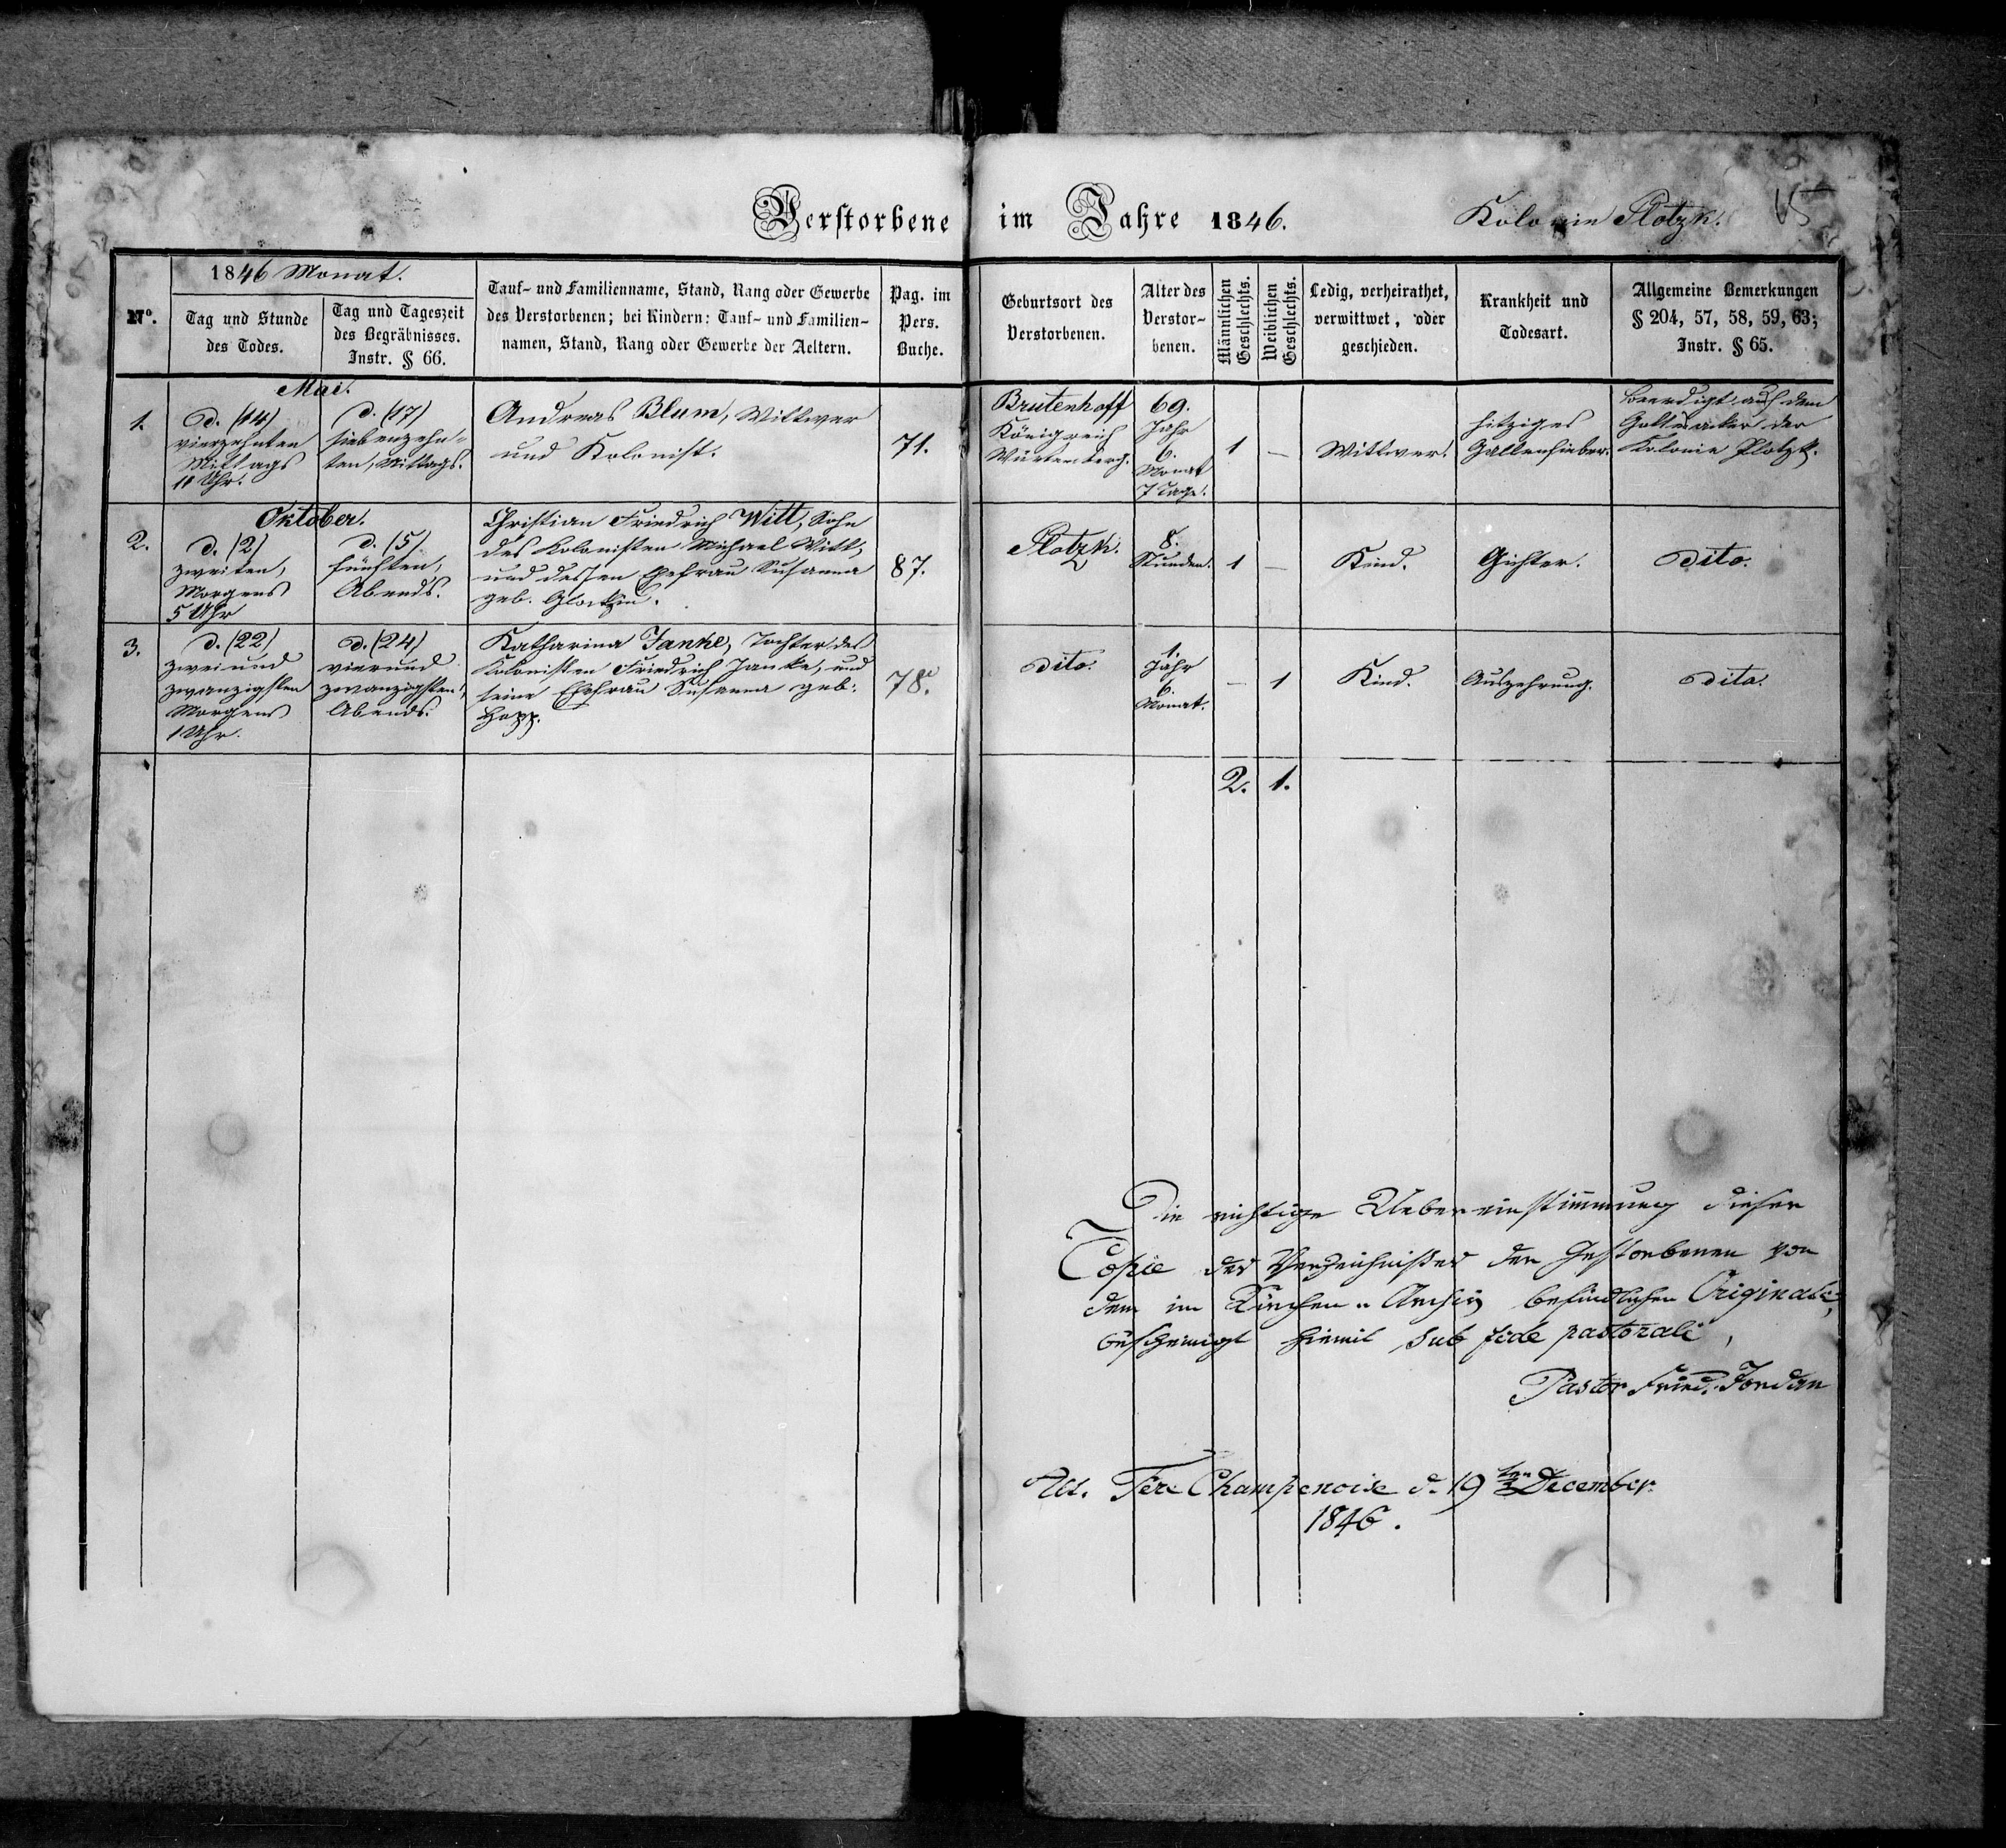 Verstorbene im Jahre 1846. Kolonie Plotzk.
1846 Monat.
No.
Tag und Stunde
des Todes.
Tag und Tageszeit
des Begräbnisses.
Instr. § 66.
Tauf- und Familienname, Stand, Rang oder Gewerbe
des Verstorbenen; bei Kindern: Tauf- und Familien-
namen, Stand, Rang oder Gewerbe der Aeltern.
Pag. im
Pers.
Buche.
Geburtsort des
Verstorbenen.
Alter des
Verstor-
benen.
Männlichen
Geschlechts.
Weiblichen
Geschlechts.
Ledig, verheirathet,
verwittwet, oder
geschieden.
Krankheit und
Todesart.
Allgemeine Bemerkungen
§ 204, 57, 58, 59, 63;
Instr. § 65.
Mai.
1.
d. (14)
vierzehnten
Mittags
Uhr.
d. (17)
siebenzehn-
ten, Mittags.
Andreas Blum, Wittwer
und Kolonist.
71.
Brutenhoff
Königreich
Würtemberg.
69.
Jahr
6.
Monat
7 Tage.
1
—
Wittwer.
hitziges
Gallenfieber.
Beerdigt auf dem
Gottesacker der
Kolonie Plotzk.
Oktober.
2.
d. (2)
zweiten,
Morgens
5 Uhr
d. (5)
fünften,
Abends.
Christian Friedrich Witt, Sohn
des Kolonisten Michael Witt,
und dessen Ehefrau Susanna
geb.
87.
Plotzk.
8.
Stunden.
1
—
Kind.
Gichter.
dito.
3.
d. (22)
zweiund
zwanzigsten
Morgens
1 Uhr.
d. (24)
vierund
zwanzigsten,
Abends.
Katharina Janke, Tochter des
Kolonisten Friedrich Janke, und
seine Ehefrau Susanna geb:
Hopp.
78.
dito.
1.
Jahr
6.
Monat.
—
1
Kind.
Auszehrung.
dito.
2. 1.
Die richtige Uebereinstimmung dieser
Copie des Verzeichnißes der Gestorbenen von
dem im Kirchen-Archiv befindlichen Originale,
bescheinigt hiemit sub fide pastorali,
Pastor Fried. Jordan
Alt. Fere Champenoise d. 19ten December
1846.